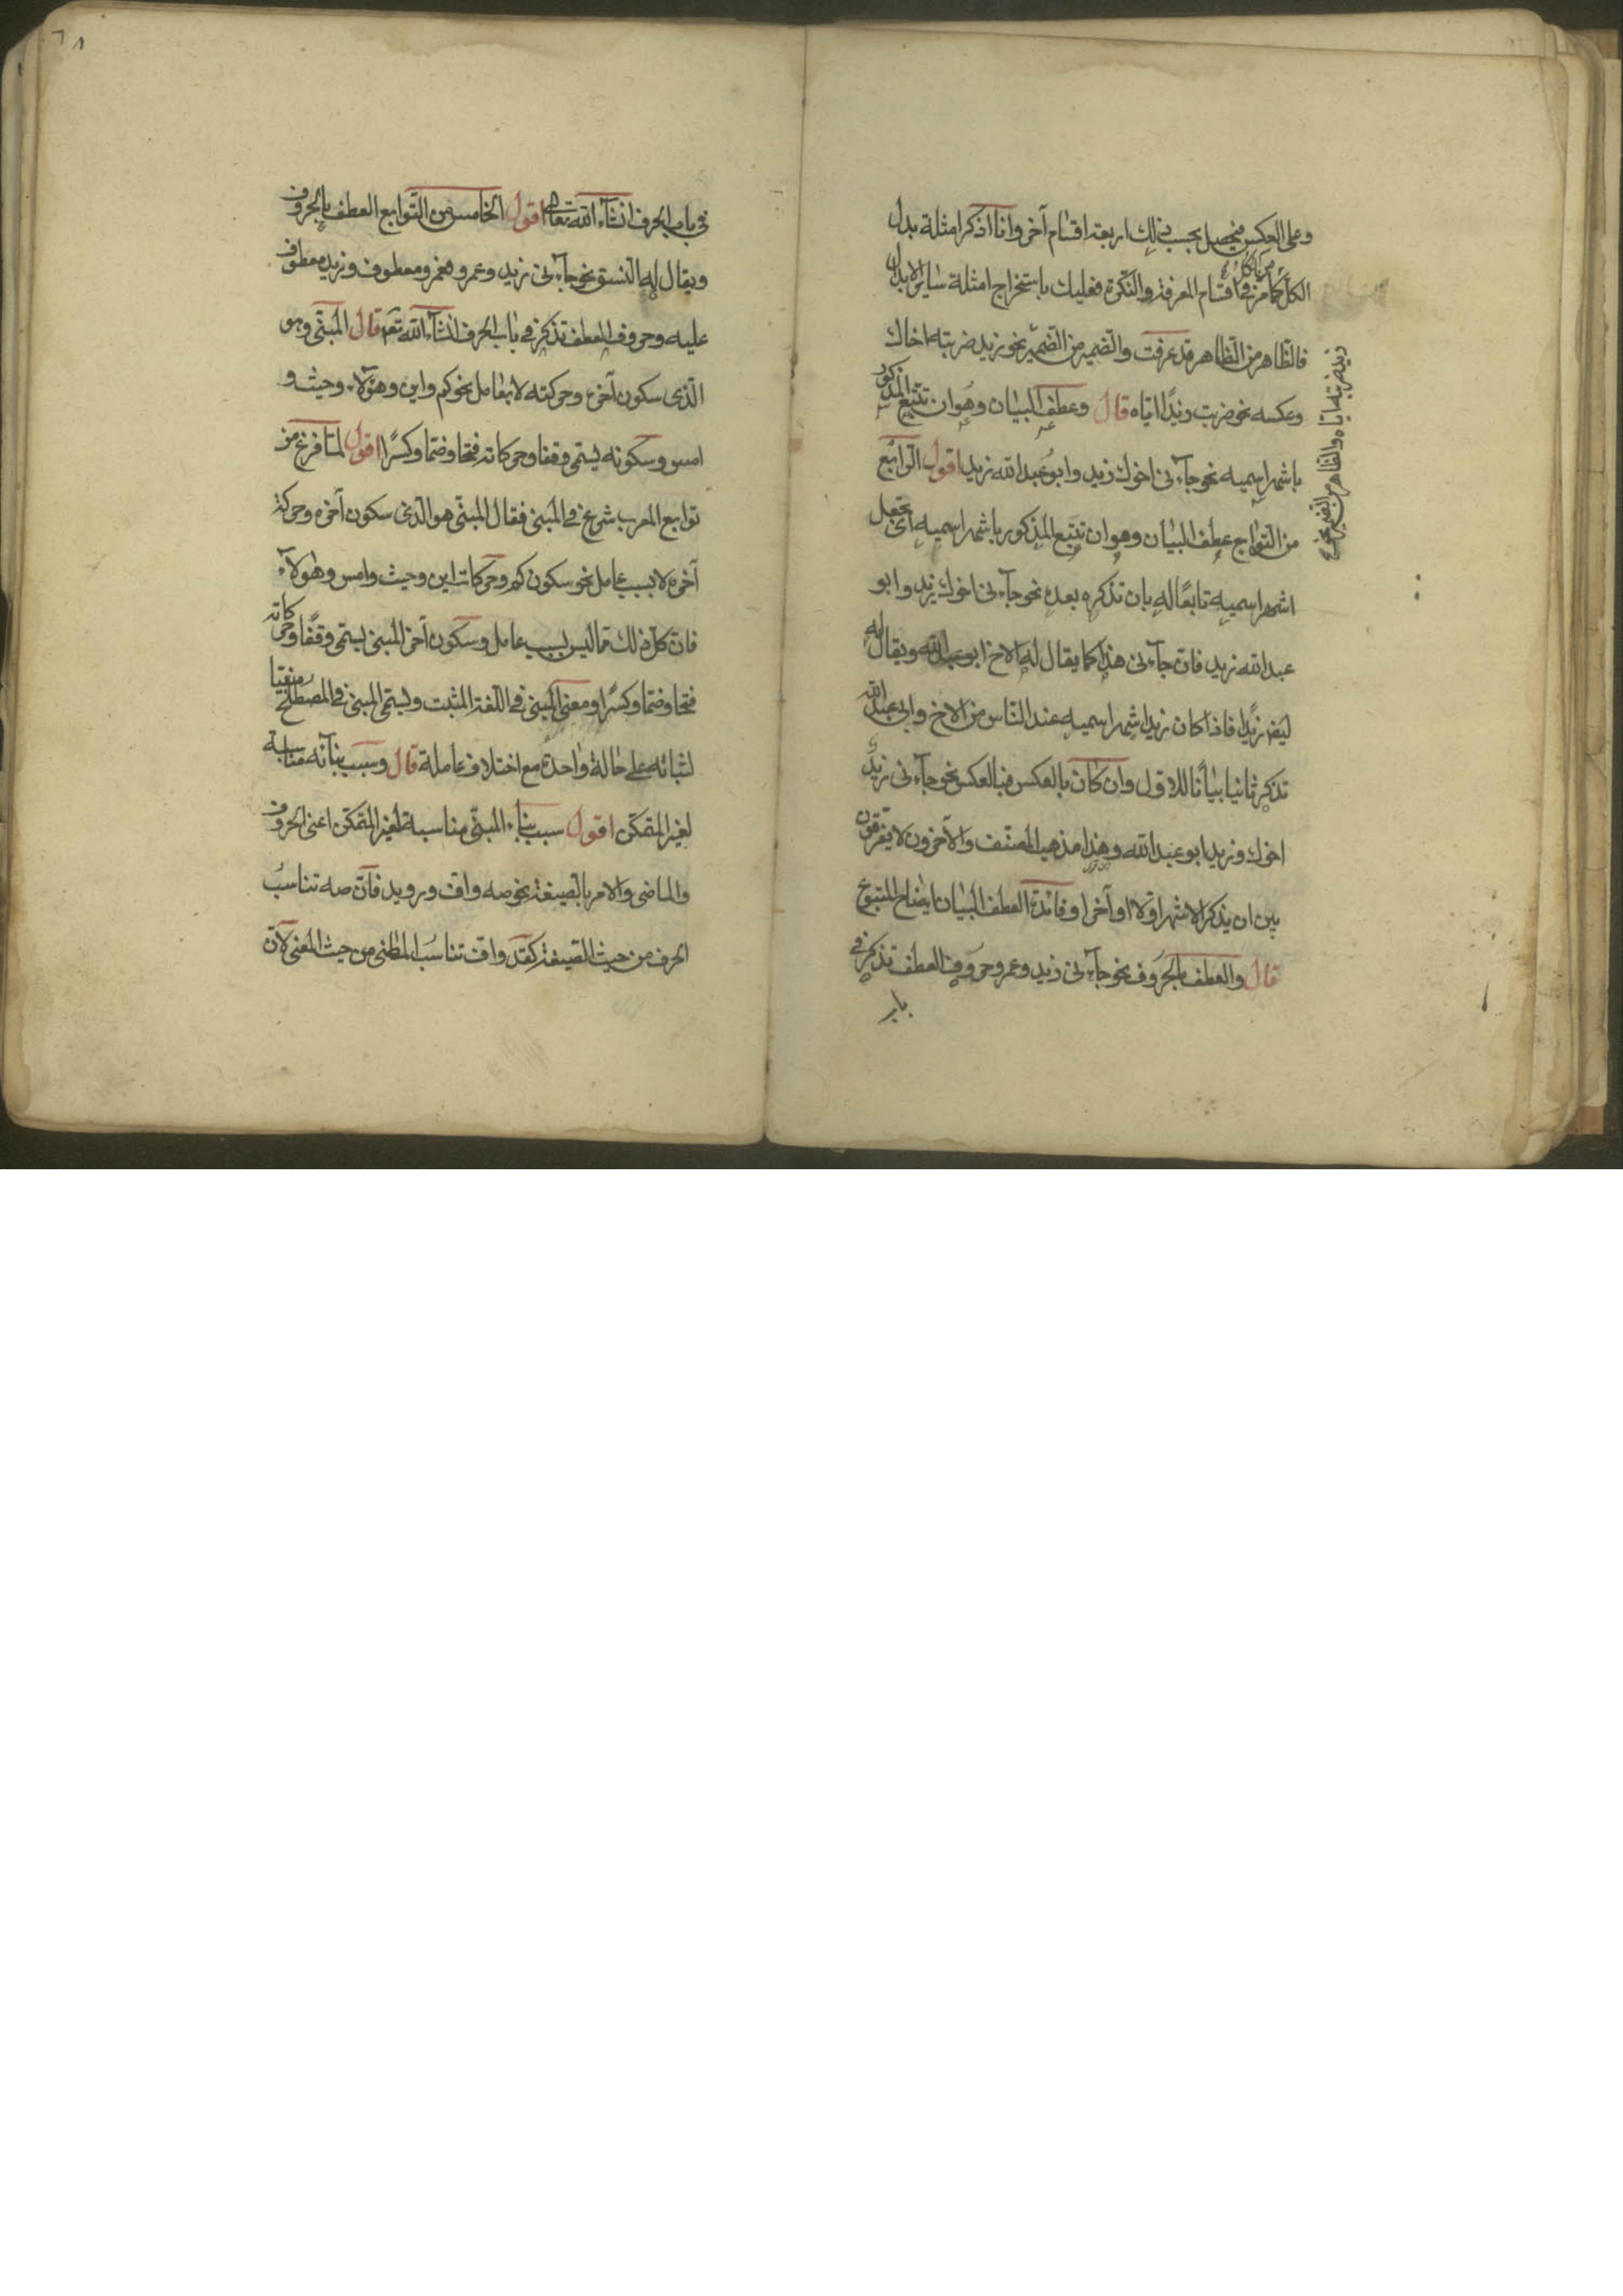 وعلى العكس فيحصل بحسب ذلك اربعة اقسام آخر وانا اذكر امثلة بدل
الكل من الكل كما مر في اقسام المعرفة والنكرة فعليك باستخراج امثلة ساير الابدال
فالظاهر من الظاهر قد عرفت والضمير من الضمير نحو زيد ضربته اياه والظاهر من الضمير نحو زيد ضربته اخاك
وعكسه نحو ضربت زيدًا اياه قال وعطف البيان وهو ان تتبع المذكور
باشهر اسميه نحو جاءنى اخوك زيد وابو عبد الله زيد اقول الرابع
من التوابع عطف البيان وهو ان تتبع المذكور باشهر اسميه اى تجعل
اشهر اسميه تابعًا له بان تذكره بعده نحو جاءنى اخوك زيد وابو
عبد الله زيد فان جاءنى هذا كما يقال له الاخ ابو عبد الله ويقال له
ايضا زيد فاذا كان زيد اشهر اسميه عند الناس من الاخ وابى عبد الله
تذكر ثانيا بيانًا للاول وان كان بالعكس فبالعكس نحو جاءنى زيد
اخوك وزيد ابو عبد الله وهذا مذهب المصنف والآخرون لا يفرقون
بين ان يذكر الاشهر اولا او آخرا وفائدة العطف البيان ايضاح المتبوع
قال والعطف بالحروف نحو جاءنى زيد وعمرو وحروف العطف تذكر في
باب
في باب الحرف انشاء الله تعالى اقول الخامس من التوابع العطف بالحروف
ويقال له النسق نحو جاءنى زيد وعمرو فعمرو معطوف وزيد معطوف
عليه وحروف العطف تذكر في باب الحرف انشاء الله تعه قال المبنى وهو
الذى سكون آخره وحركته لا بعامل نحو كم واين وهؤلاء وحيث و
امس وسكونه يسمى وقفا وحركاته فتحا وضما وكسرًا اقول لما فرغ من
توابع المعرب شرع في المبنى فقال المبنى هو الذى سكون آخره وحركة
آخره لا بسبب عامل نحو سكون كم وحركات اين وحيث وامس وهؤلاء
فان كل ذلك مما ليس بسبب عامل وسكون آخر المبنى يسمى وقفًا وحركاته
فتحا وضما وكسرًا ومعنى المبنى في اللغة المثبت ويسمى المبنى في المصطلح مبنيا
لثباته على حالة واحدة مع اختلاف عامله قال وسبب بنائه مناسبة
لغير المتمكن اقول سبب بناء المبنى مناسبة لغير المتمكن اعنى الحروف
والماضى والامر بالصيغة نحو صه واف ورويد فان صه تناسب
الحرف من حيث الصيغة كقد واف تناسب الماضى من حيث المعنى لان